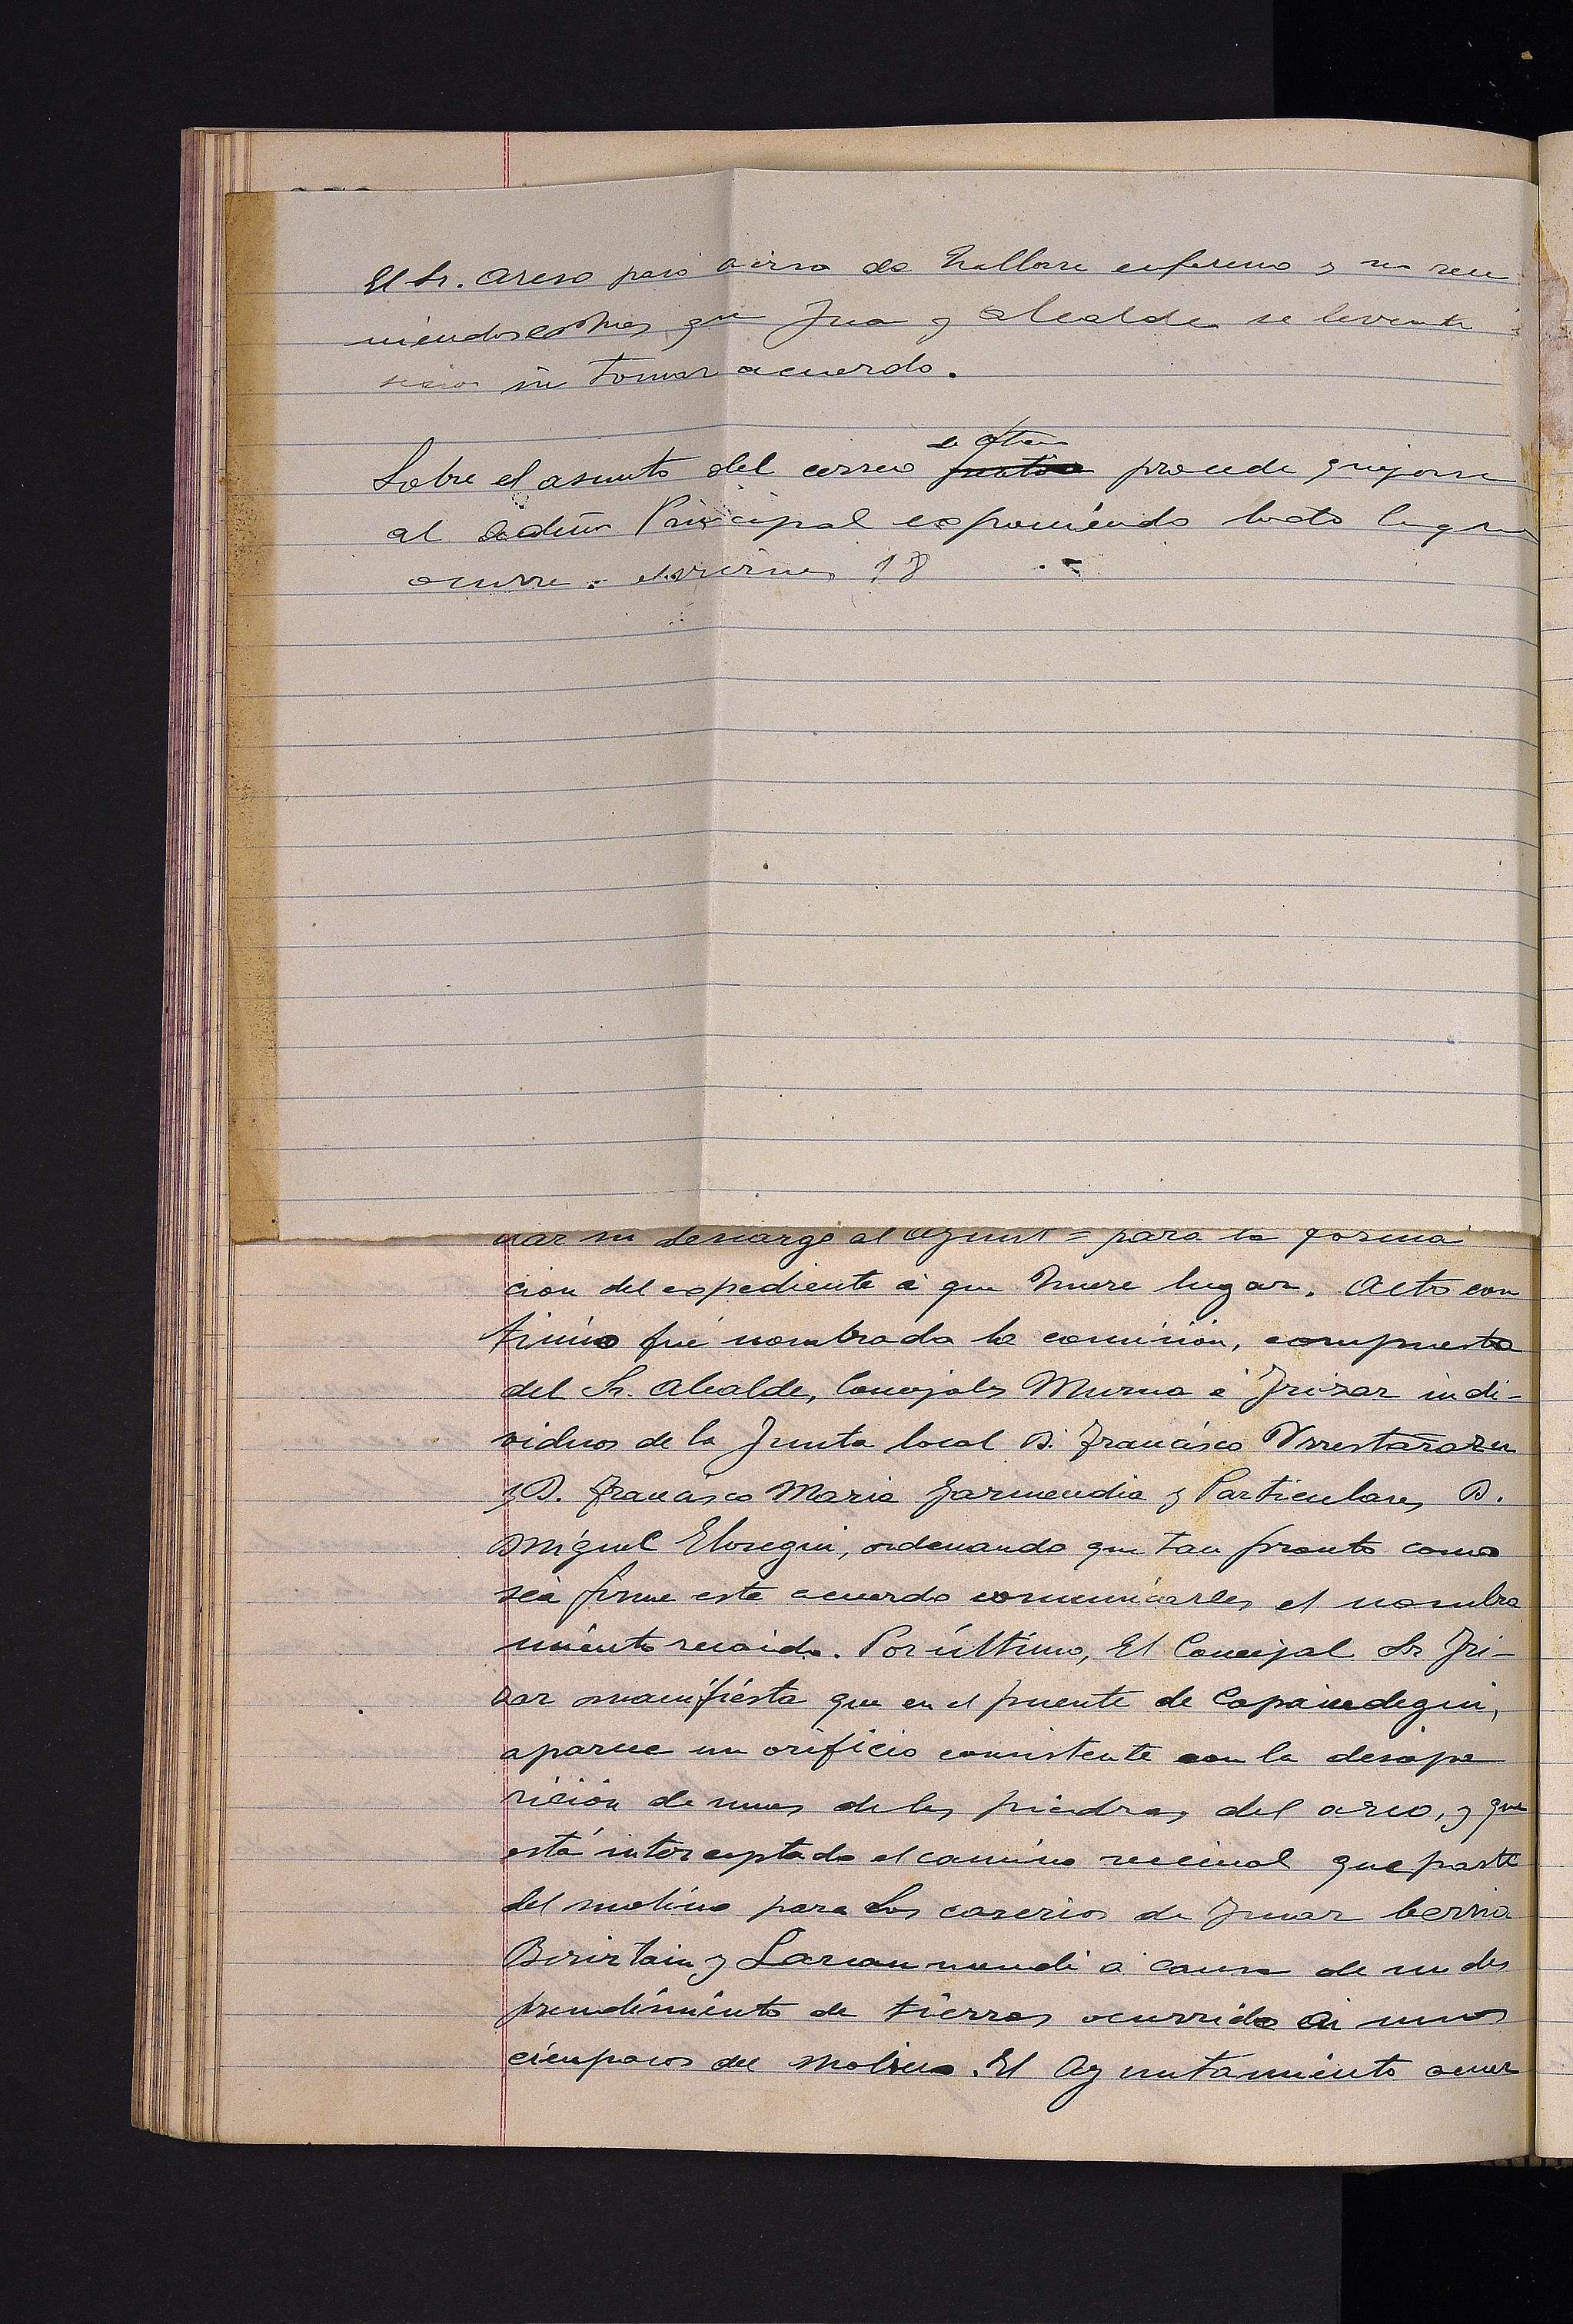 El Sr. Areso pasó aviso de hallarse enfermo y no reu
niendose mas que Jua y Alcalde se levanta
sesion sin tomar acuerdo.
Sobre el asunto del correo de Ataun procede quejarse
al Admor Principal exponiendo todo lo que
ocurre. el viernes 18
uar su descargo al Ayunt = para la forma
ción del expediente á que hubiere lugar. Acto con
tinúo fué nombrada la comisión, compuesta
del Sr. Alcalde, Concejales Murua é Irizar indi-
viduos de la Junta local D. Francisco Urrestarazu
y D. Francisco Maria Garmendia y Particulares D.
Miguel Elosegui, ordenando que tan pronto como
sea firme este acuerdo comunicarles el nombra
miento recaido. Por último, El Concejal Sr Iri-
zar manifiesta que en el puente de
aparece un orificio consistente con la desapa
rición de unas de las piedras del arco, y que
está interceptado el camino vecinal que parte
del molino para los caserios de
y á causa de un des
prendimiento de tierras ocurrido á unos
cien pasos del Molino. El Ayuntamiento acuer